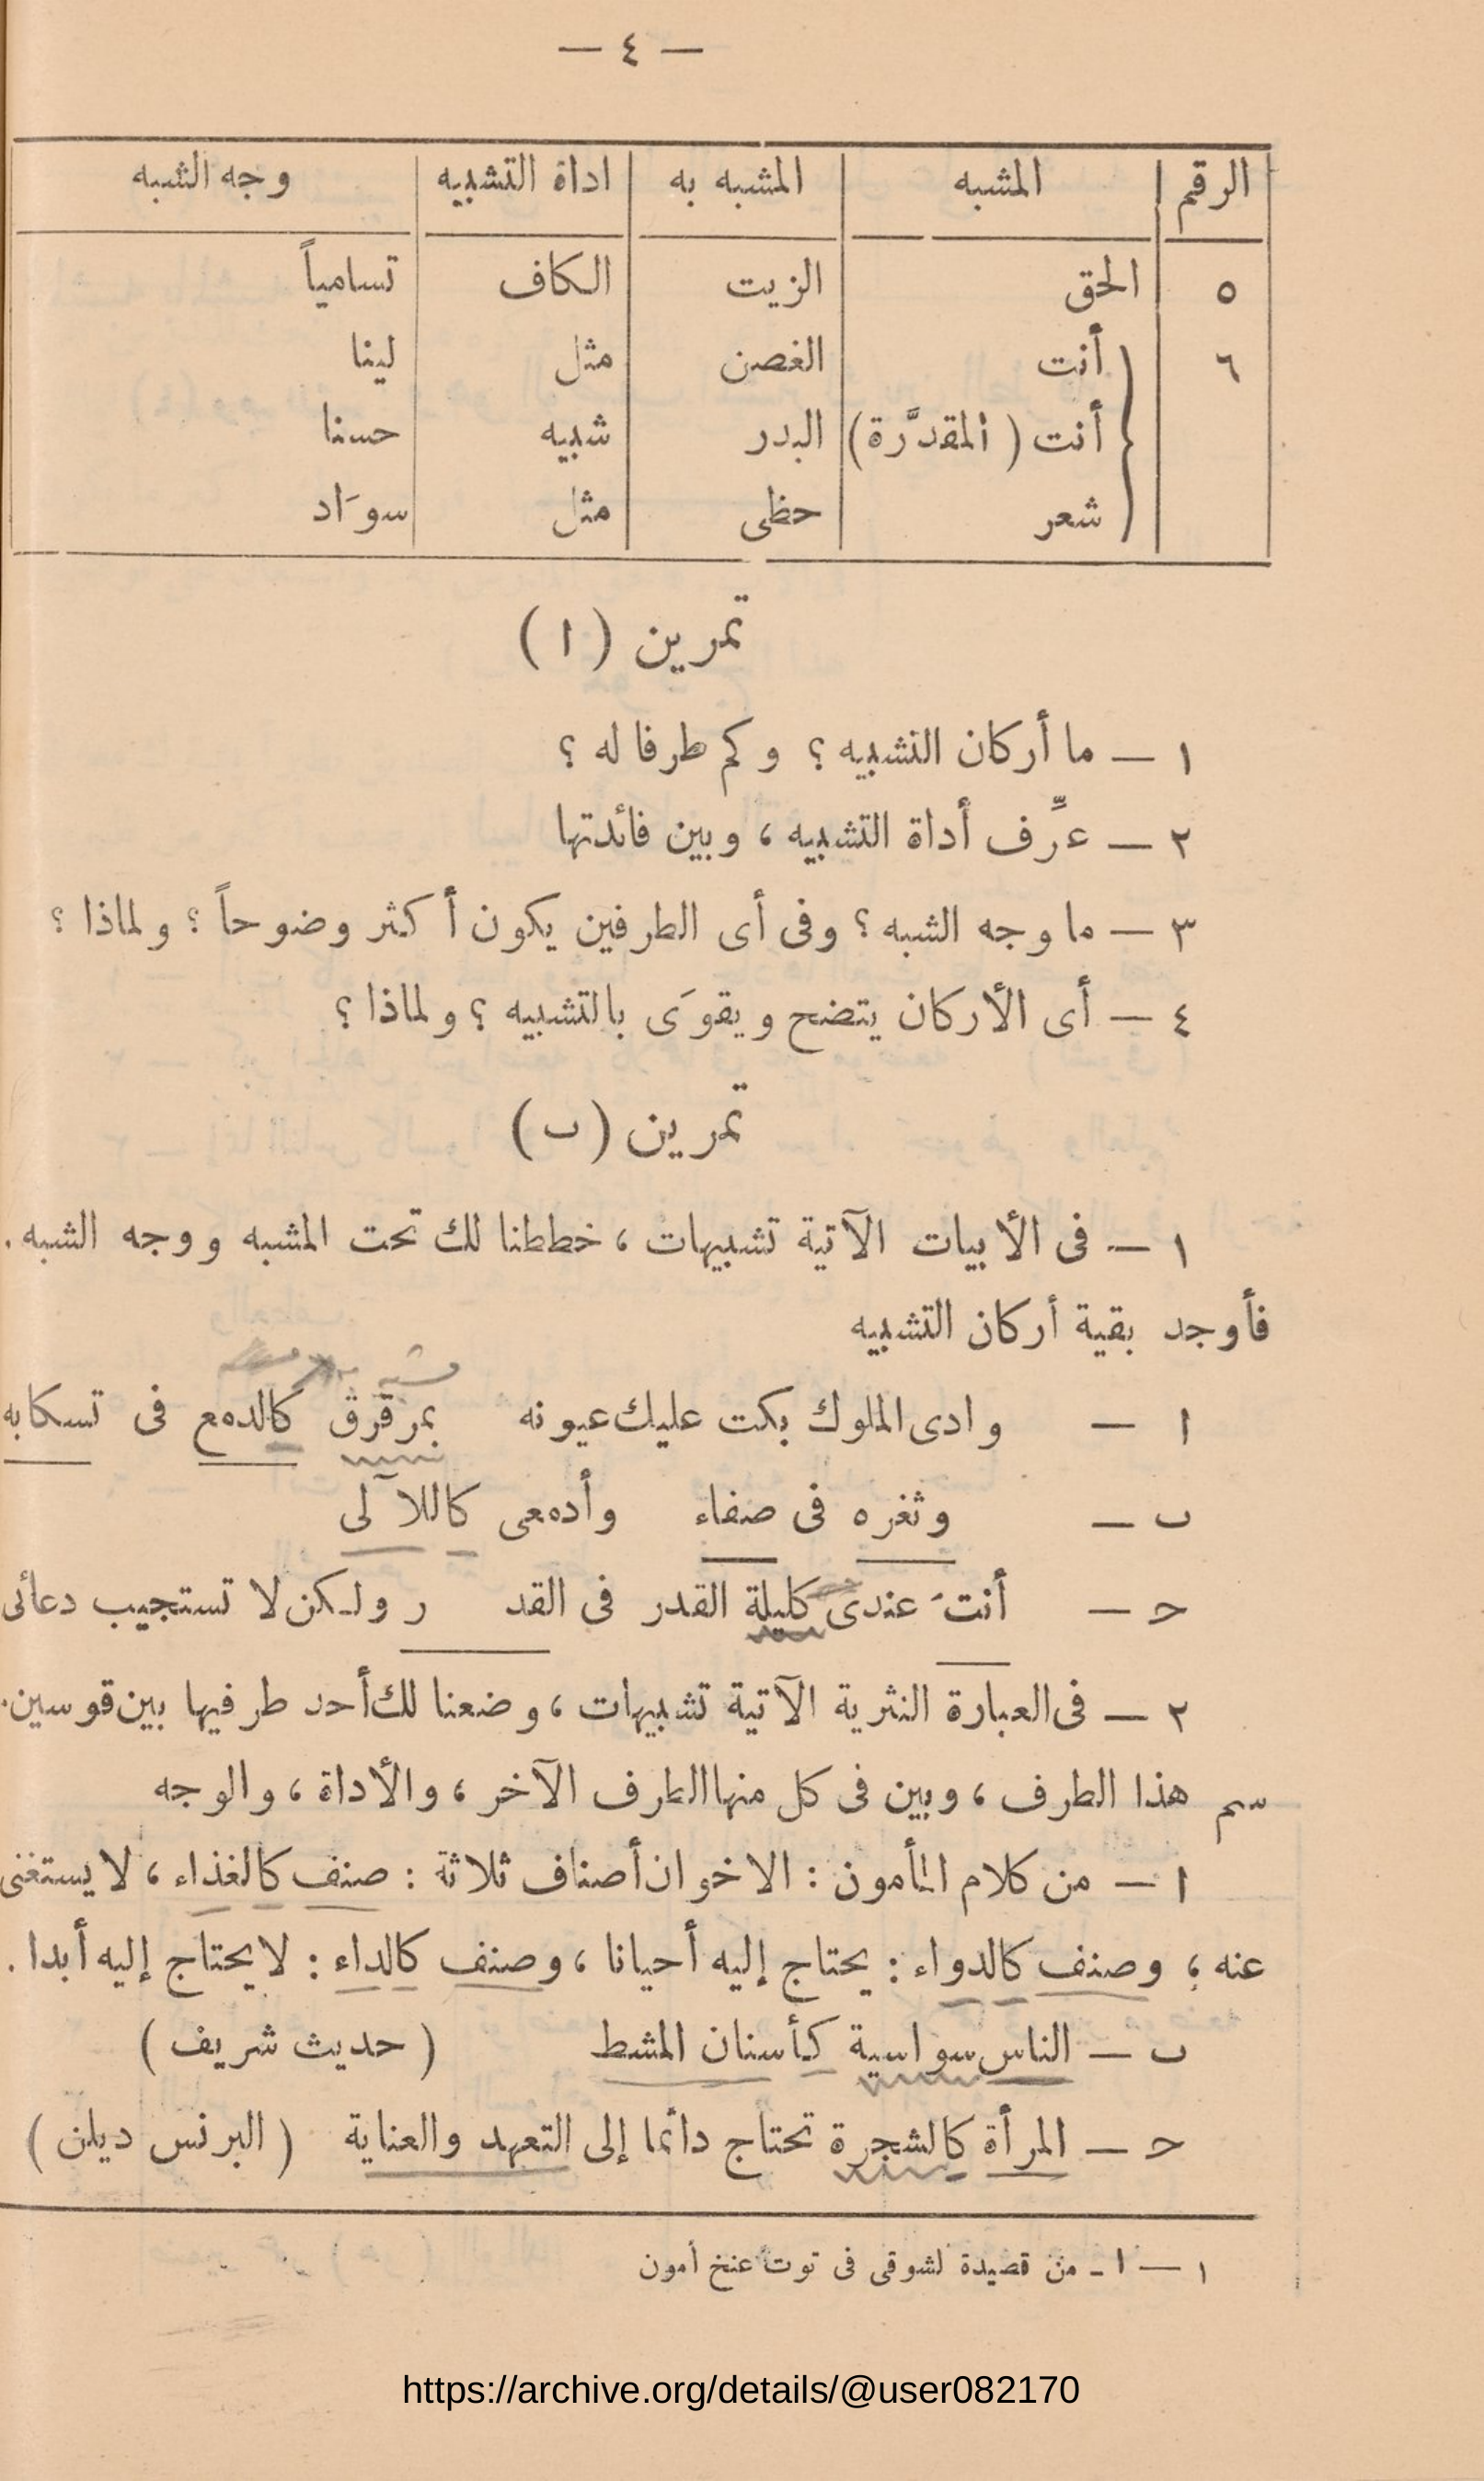 — ٤ —
الرقم المشبه المشبه به اداة التشبيه وجه الشبه
٥ الحق الزيت الكاف تسامياً
٦ أنت الغصن مثل لينا
أنت ( المقدَّرة) البدر شبيه حسنا
شعر حظى مثل سوَاد
تمرين ( ا )
١ — ما أركان التشبيه ؟ وكم طرفا له ؟
٢ — عرِّف أداة التشبيه ، وبين فائدتها
٣ — ما وجه الشبه ؟ وفى أى الطرفين يكون أكثر وضوحاً ؟ ولماذا ؟
٤ — أى الأركان يتضح ويقوَى بالتشبيه ؟ ولماذا ؟
تمرين ( ب )
١ — فى الأبيات الآتية تشبيهات ، خططنا لك تحت المشبه ووجه الشبه .
فأوجد بقية أركان التشبيه
ا — وادى الملوك بكت عليك عيونه بمرقرق كالدمع فى تسكابه
ب — وثغره فى صفاء وأدمعى كاللآلى
ح — أنتَ عندى كليلة القدر فى القد ر ولكن لا تستجيب دعائى
٢ — فى العبارة النثرية الآتية تشبيهات ، وضعنا لك أحد طرفيها بين قوسين.
سم هذا الطرف ، وبين فى كل منها الطرف الآخر ، والأداة ، والوجه
ا — من كلام المأمون : الاخوان أصناف ثلاثة : صنف كالغذاء ، لا يستغنى
عنه ، وصنف كالدواء : يحتاج إليه أحيانا ، وصنف كالداء : لا يحتاج إليه أبدا .
ب — الناس سواسية كأسنان المشط ( حديث شريف )
ح — المرأة كالشجرة تحتاج دائما إلى التعهد والعناية ( البرنس ديلن )
١ — ا - من قصيدة لشوقى فى توت عنخ أمون
https://archive.org/details/@user082170